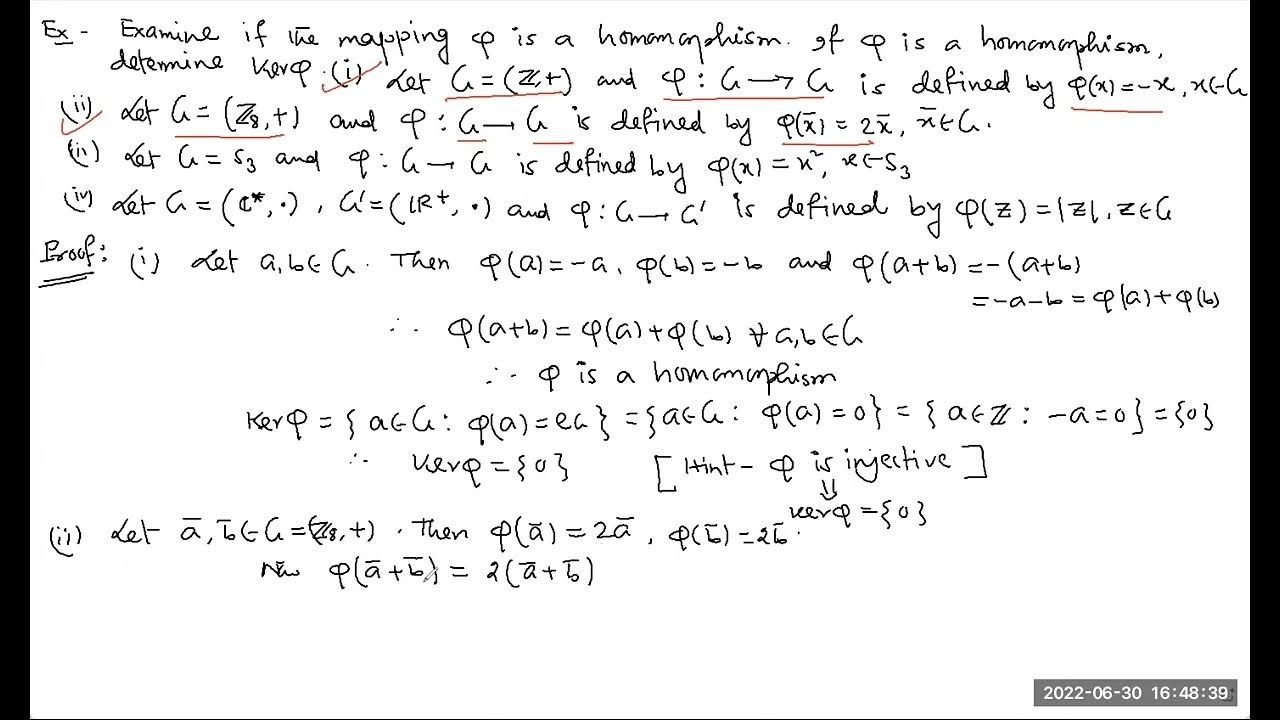 Ex - Examine if the mapping φ is a homomorphism. If φ is a homomorphism,
determine Kerφ. (i) Let G = (ℤ,+) and φ : G → G is defined by φ(x) = -x, x∈G
(ii) Let G = (ℤ₈,+) and φ : G → G is defined by φ(x̄) = 2x̄, x̄∈G.
(ii) Let G = S₃ and φ : G → G is defined by φ(x) = x², x∈S₃
(iv) Let G = (ℂ*, ·), G' = (ℝ⁺, ·) and φ : G → G' is defined by φ(z) = |z|, z∈G
Proof: (i) Let a,b∈G. Then φ(a) = -a, φ(b) = -b and φ(a+b) = -(a+b)
= -a-b = φ(a)+φ(b)
∴ φ(a+b) = φ(a)+φ(b) ∀ a,b∈G
∴ φ is a homomorphism
Kerφ = {a∈G : φ(a) = eG} = {a∈G : φ(a) = 0} = {a∈ℤ : -a = 0} = {0}
∴ Kerφ = {0} [Hint - φ is injective]
⇓
Kerφ = {0}
(ii) Let ā, b̄∈G = (ℤ₈,+). Then φ(ā) = 2ā, φ(b̄) = 2b̄.
Now φ(ā+b̄) = 2(ā+b̄)
2022-06-30 16:48:39